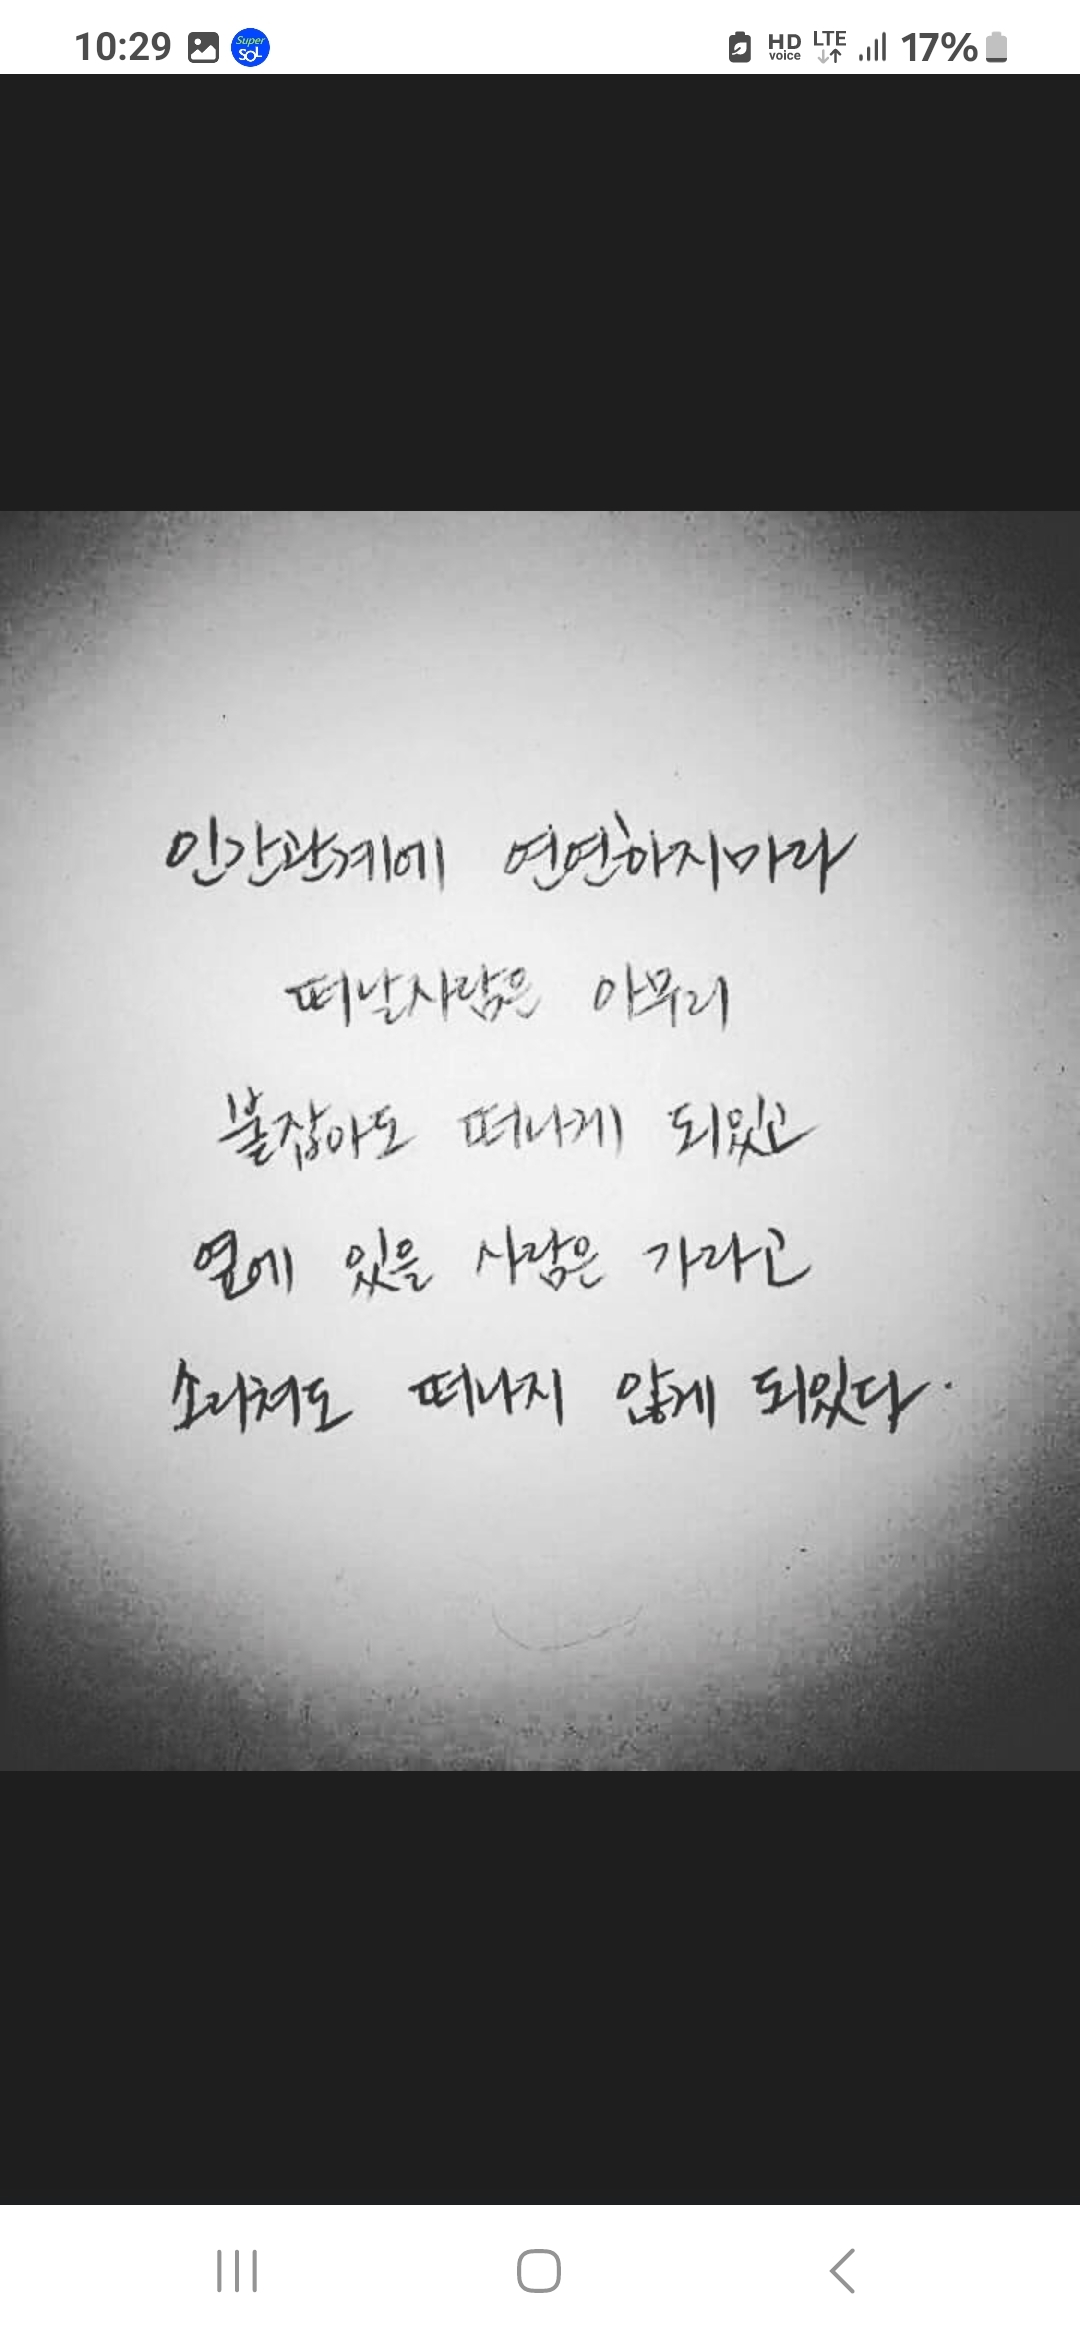 10:29 Super SOL HD voice LTE 17%
인간관계에 연연하지마라
떠날사람은 아무리
붙잡아도 떠나게 되있고
옆에 있을 사람은 가라고
소리쳐도 떠나지 않게 되있다.